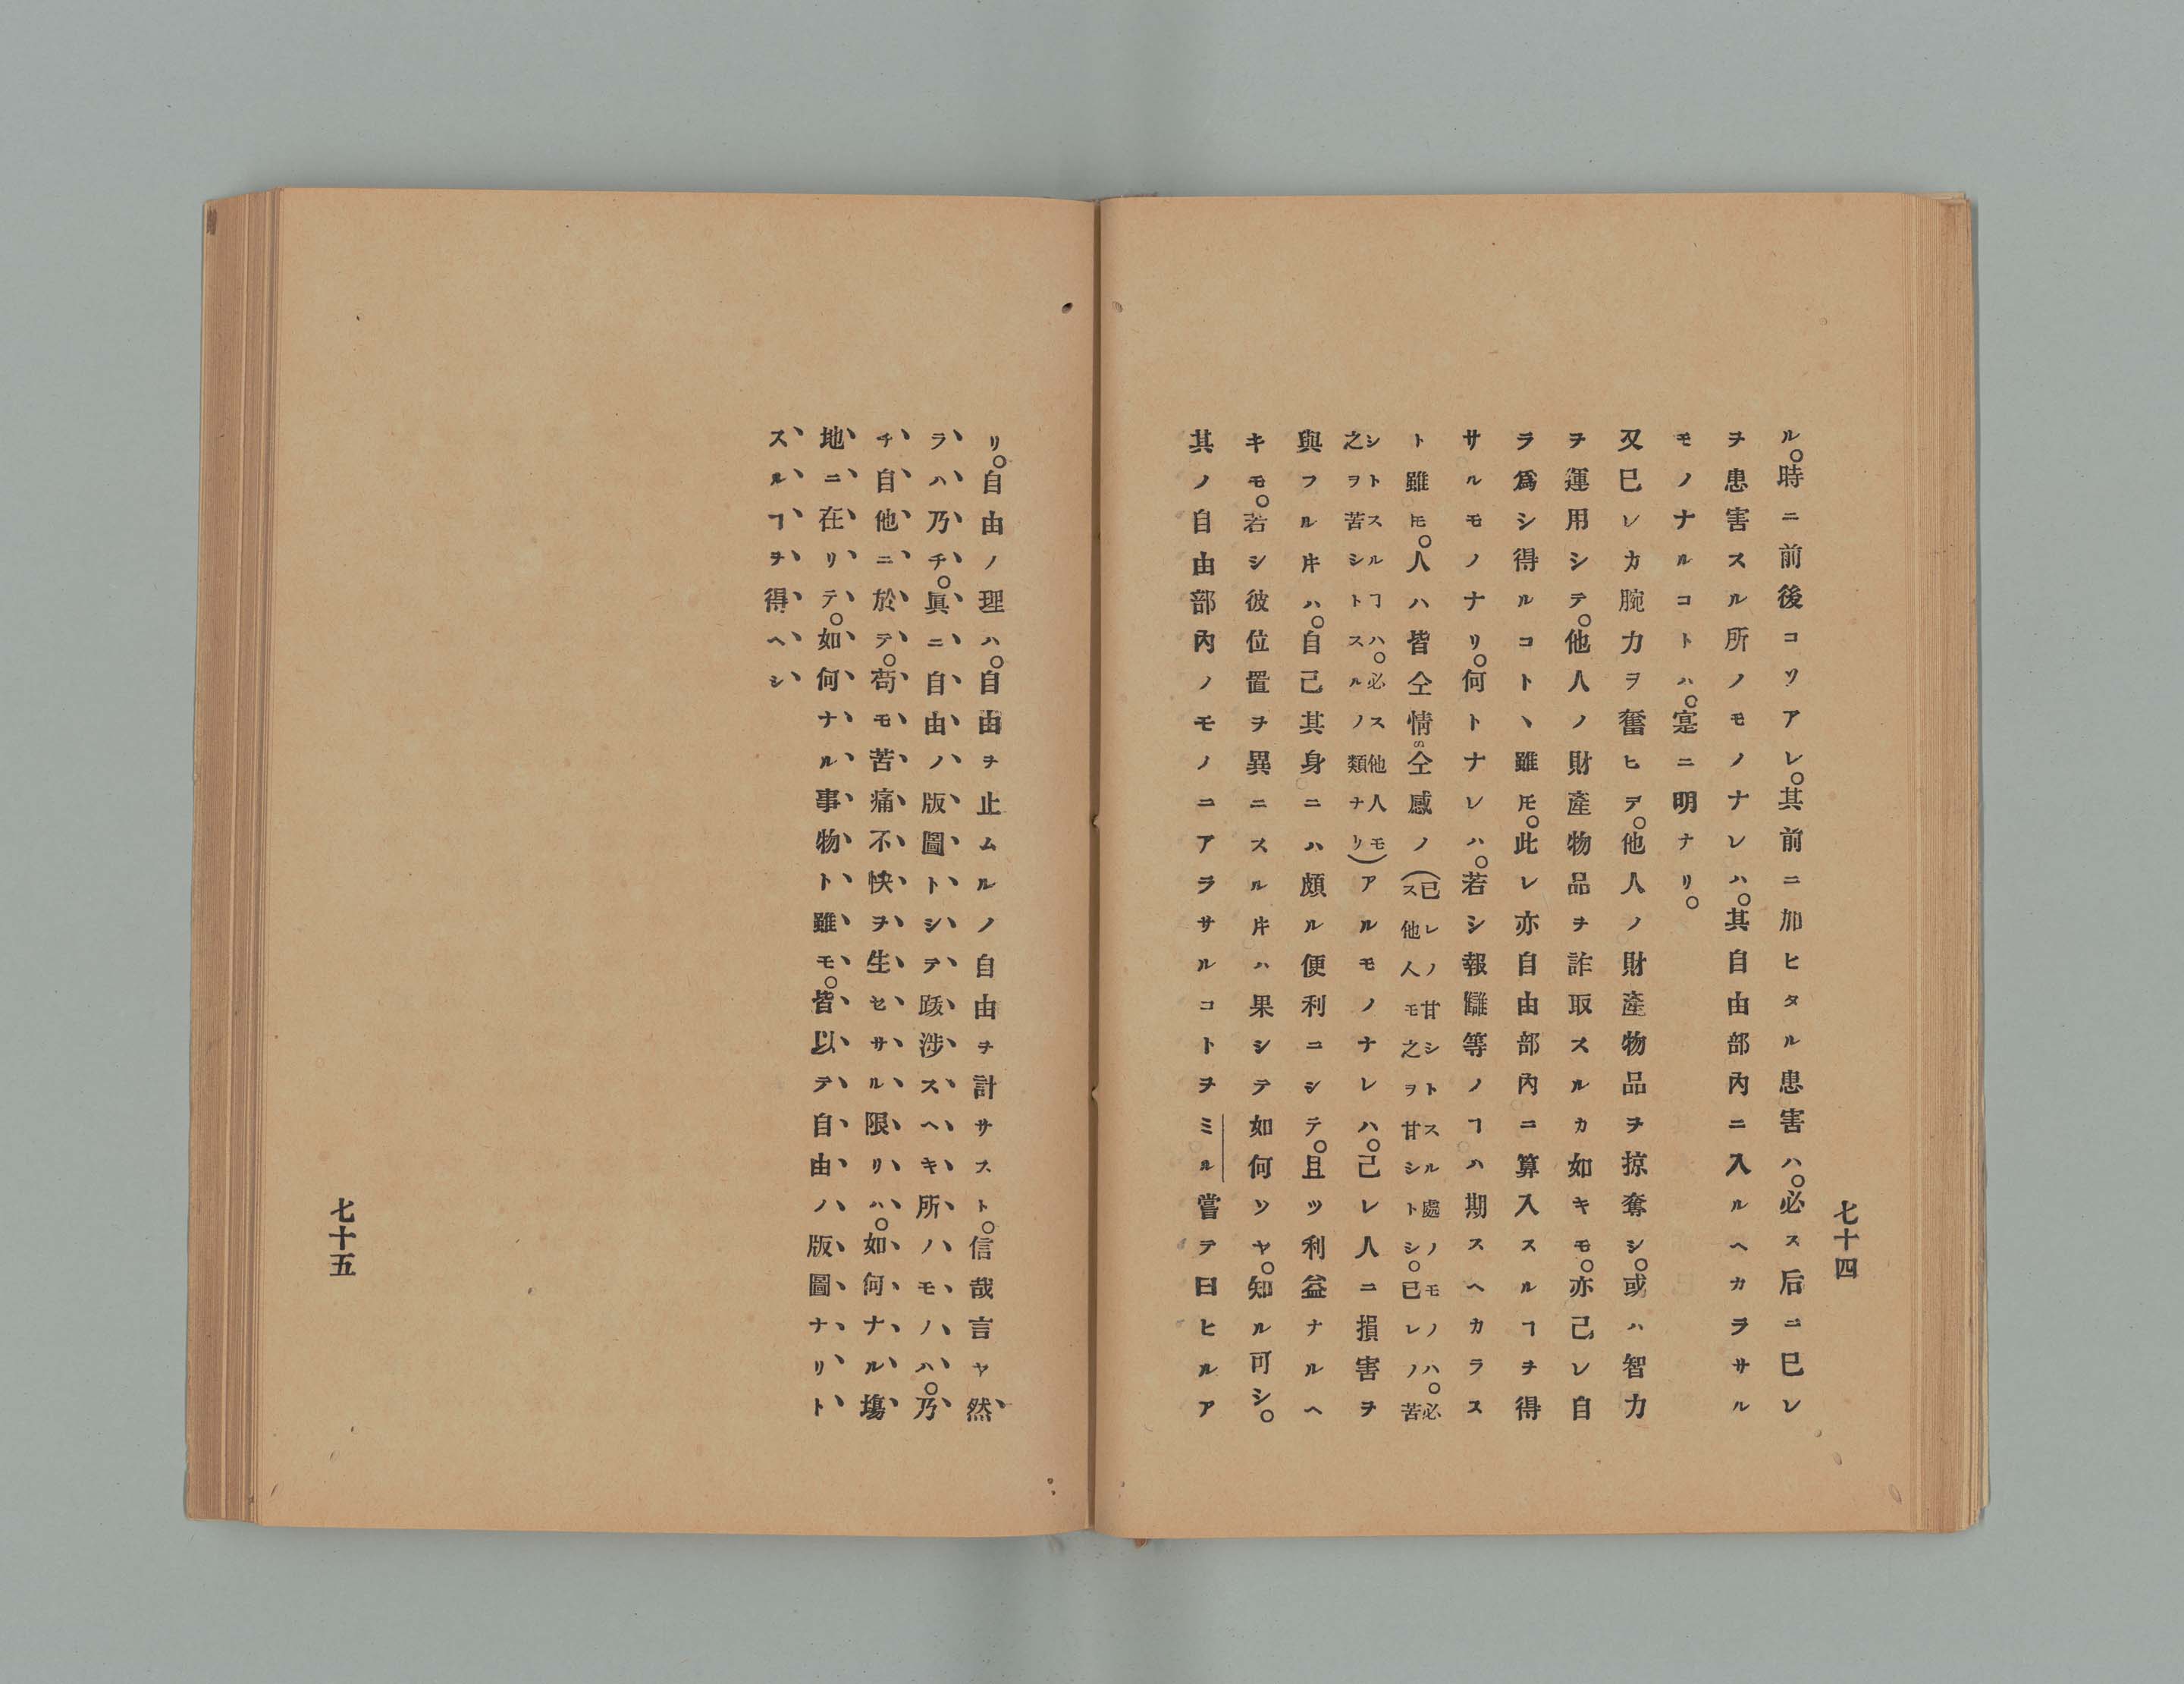 ル。時ニ前後コソアレ。其前ニ加ヒタル患害ハ。必ス后ニ已レ
ヲ患害スル所ノモノナレハ。其自由部內ニ入ルヘカラサル
モノナルコトハ。寔ニ明ナリ。
又已レカ腕力ヲ奮ヒテ。他人ノ財產物品ヲ掠奪シ。或ハ智力
ヲ運用シテ。他人ノ財產物品ヲ詐取スルカ如キモ。亦己レ自
ラ爲シ得ルコトヽ雖𪜈。此レ亦自由部內ニ算入スルヿヲ得
サルモノナリ。何トナレハ。若シ報讎等ノヿハ期スヘカラス
ト雖𪜈。人ハ皆仝情の仝感ノ(已レノ甘シトスル處ノモノハ。必
ス他人モ之ヲ甘シトシ。已レノ苦
シトスルヿハ。必ス他人モ
之ヲ苦シトスルノ類ナリ)アルモノナレハ。己レ人ニ損害ヲ
與フルキハ。自己其身ニハ頗ル便利ニシテ。且ツ利益ナルヘ
キモ。若シ彼位置ヲ異ニスルキハ果シテ如何ソヤ。知ル可シ。
其ノ自由部內ノモノニアラサルコトヲミル嘗テ曰ヒルア
七十四
リ。自由ノ理ハ。自由ヲ止ムルノ自由ヲ計サスト。信哉言ヤ然
ラハ乃チ。眞ニ自由ノ版圖トシテ跋涉スヘキ所ノモノハ。乃
チ自他ニ於テ。苟モ苦痛不快ヲ生セサル限リハ。如何ナル塲
地ニ在リテ。如何ナル事物ト雖モ。皆以テ自由ノ版圖ナリト
スルヿヲ得ヘシ
七十五